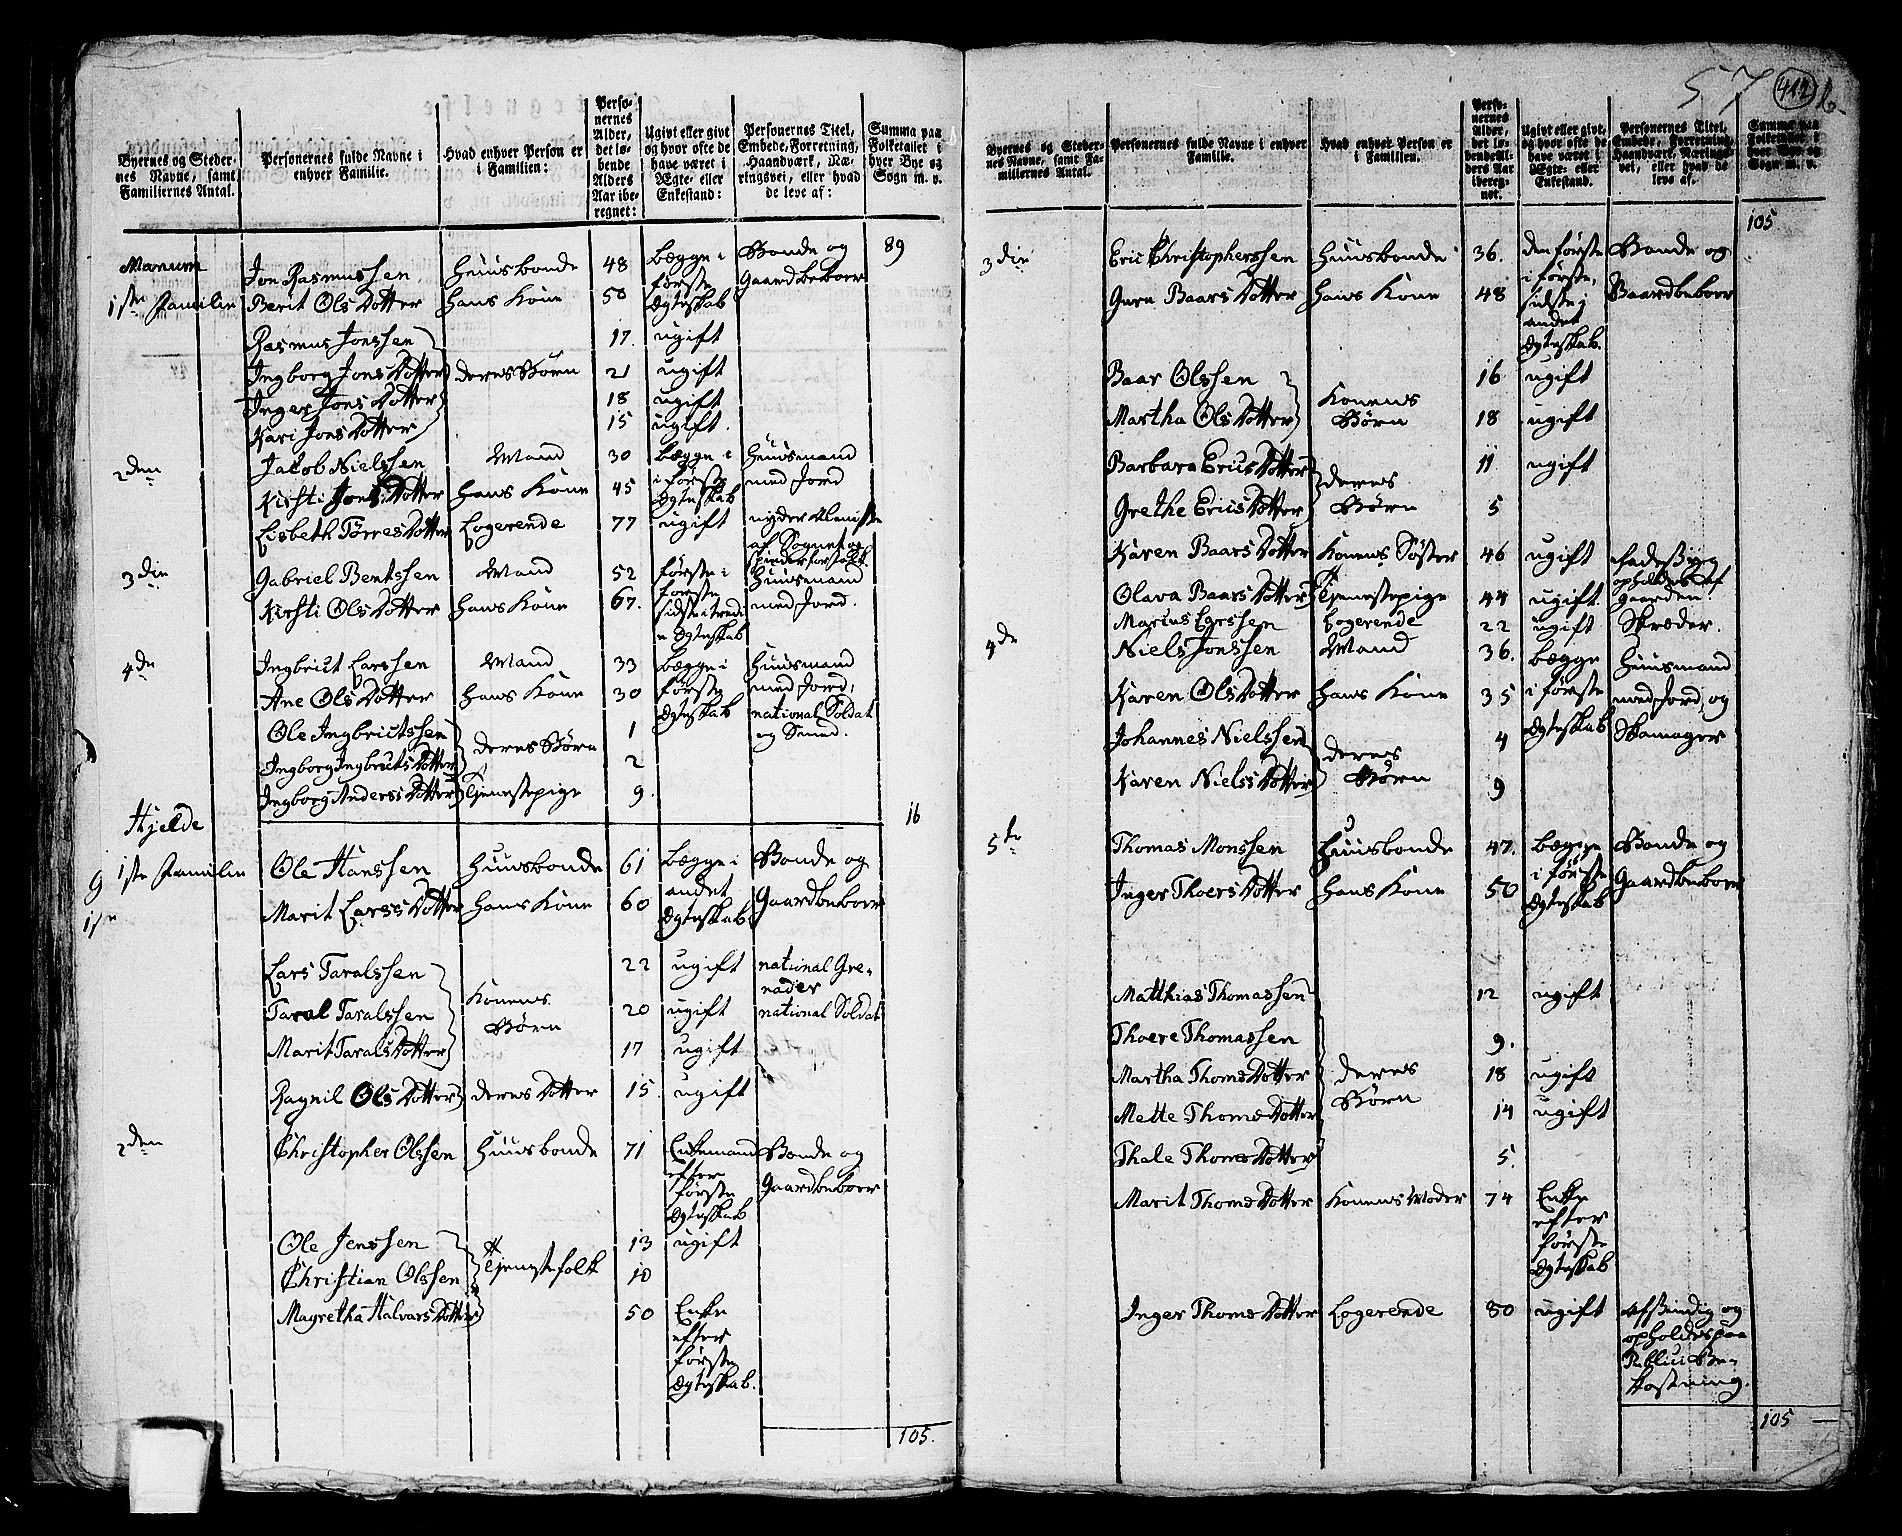 Byernes og Stedernes Navne, samt Familiernes Antal.
Personernes fulde Navne i enhver Familie.
Hvad enhver Person er i Familien:
Personernes Alder, det løbende Alders Aar iberegnet:
Ugivt eller givt og hvor ofte de have været i Ægte- eller Enkestand:
Personernes Titel, Embede, Forretning, Haandværk, Næringsvei, eller hvad de leve af:
Summa paa Folketallet i hver Bye og Sogn m. v.
89
Manum
1ste Familie
Jon Rasmussen Huusbonde 48 begge i første Ægteskab Bonde og Gaardbeboer
Berit Ols Dotter hans Kone 50
Rasmus Jonssen 17. ugift
Ingborg Jons Dotter deres Børn 21 ugift
Inger Jons Dotter 18 ugift
Kari Jons Dotter 15 ugift.
2den Jakob Nielssen Mand 30 begge i første Ægteskab Huusmand med Jord
Kirsti Jons Dotter hans Kone 45
Lisbeth Tørres Dotter Logerende 77 ugift nyder Almisse af Sognet og
3die Gabriel Bentssen Mand 52 første i første Huusmand med Jord.
Kirsti Ols Dotter hans Kone 67. sidste i tredie Ægteskab
4de Ingbrict Larssen Mand 33 begge i første Ægteskab Huusmand med Jord, national Soldat og Smed.
Ane Ols Dotter hans Kone 30
Ole Ingbrictssen deres Børn 1
Ingborg Ingbricts Dotter 2
Ingborg Anders Dotter Tjenestepige 9.
16
Hjelde
1ste Familie
Ole Hanssen Huusbonde 61 begge i andet Ægteskab Bonde og Gaardbeboer
Marit Larss Dotter hans Kone 60
Lars Taralssen 22 ugift national Grenader
Taral Taralssen Konens Børn 20 ugift national Soldat
Marit Tarals Dotter 17 ugift
Ragnil Ols Dotter deres Dotter 15. ugift
2den Christopher Olssen Huusbonde 71 Enkemand efter første Ægteskab Bonde og Gaardbeboer
Ole Jenssen Tjenestefolk 13 ugift
Christian Olssen 10
Magretha Halvars Dotter 50 Enke efter første Ægteskab.
105.
57 412 b.
Byernes og Stedernes Navne, samt Familiernes Antal.
Personernes fulde Navne i enhver Familie.
Hvad enhver Person er i Familien.
Personernes Alder, det løbende Alders Aar iberegnet.
Ugivt eller givt, og hvor ofte de have været i Ægte- eller Enkestand.
Personernes Titel, Embede, Forretning, Haandværk, Næringsvei, eller hvad de leve af.
Summa paa Folketallet i hver Bye og Sogn m. v.
105.
3die Eric Christopherssen Huusbonde 36. den første i første, sidste i andet Ægteskab. Bonde og Gaardbeboer
Guru Baars Dotter hans Kone 48
Baar Olssen Konens Børn 16 ugift
Martha Ols Dotter 18 ugift
Barbara Erics Dotter deres Børn 11. ugift
Grethe Erics Dotter 5
Karen Baars Dotter Konens Søster 46 ugift opholdes af gaarden.
Olava Baars Dotter Tjenestepige 44 ugift.
Marius Larssen Logerende 22 ugift Skræder.
4de Niels Jonssen Mand 36. begge i første Ægteskab Huusmand med Jord, og Skomager
Karen Ols Dotter hans Kone 35
Johannes Nielssen deres Børn 4
Karen Niels Dotter 9
5te Thomas Monssen Huusbonde 47. begge i første Ægteskab Bonde og Gaardbeboer
Inger Thoers Dotter hans Kone 50
Matthias Thomassen 12 ugift
Thoere Thomassen 9.
Martha Thoms Dotter deres Børn 18 ugift
Mette Thoms Dotter 14 ugift
Thale Thoms Dotter 5.
Marit Thoms Dotter Konens Moder 74 Enke efter første Ægteskab
Inger Thoms Dotter Logerende 80 ugift Afsindig og opholdes paa Publici Bekostning.
105